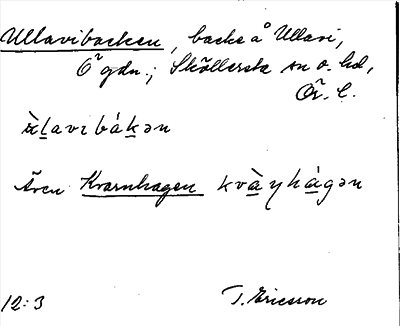 Ullavibacken, backe å Ullavi,
Ö gdn.; Sköllersta sn o. hd,
Ör. l.
ù̱lavibákən
Även Kvarnhagen kvàṇhágən
12:3 T. Ericsson